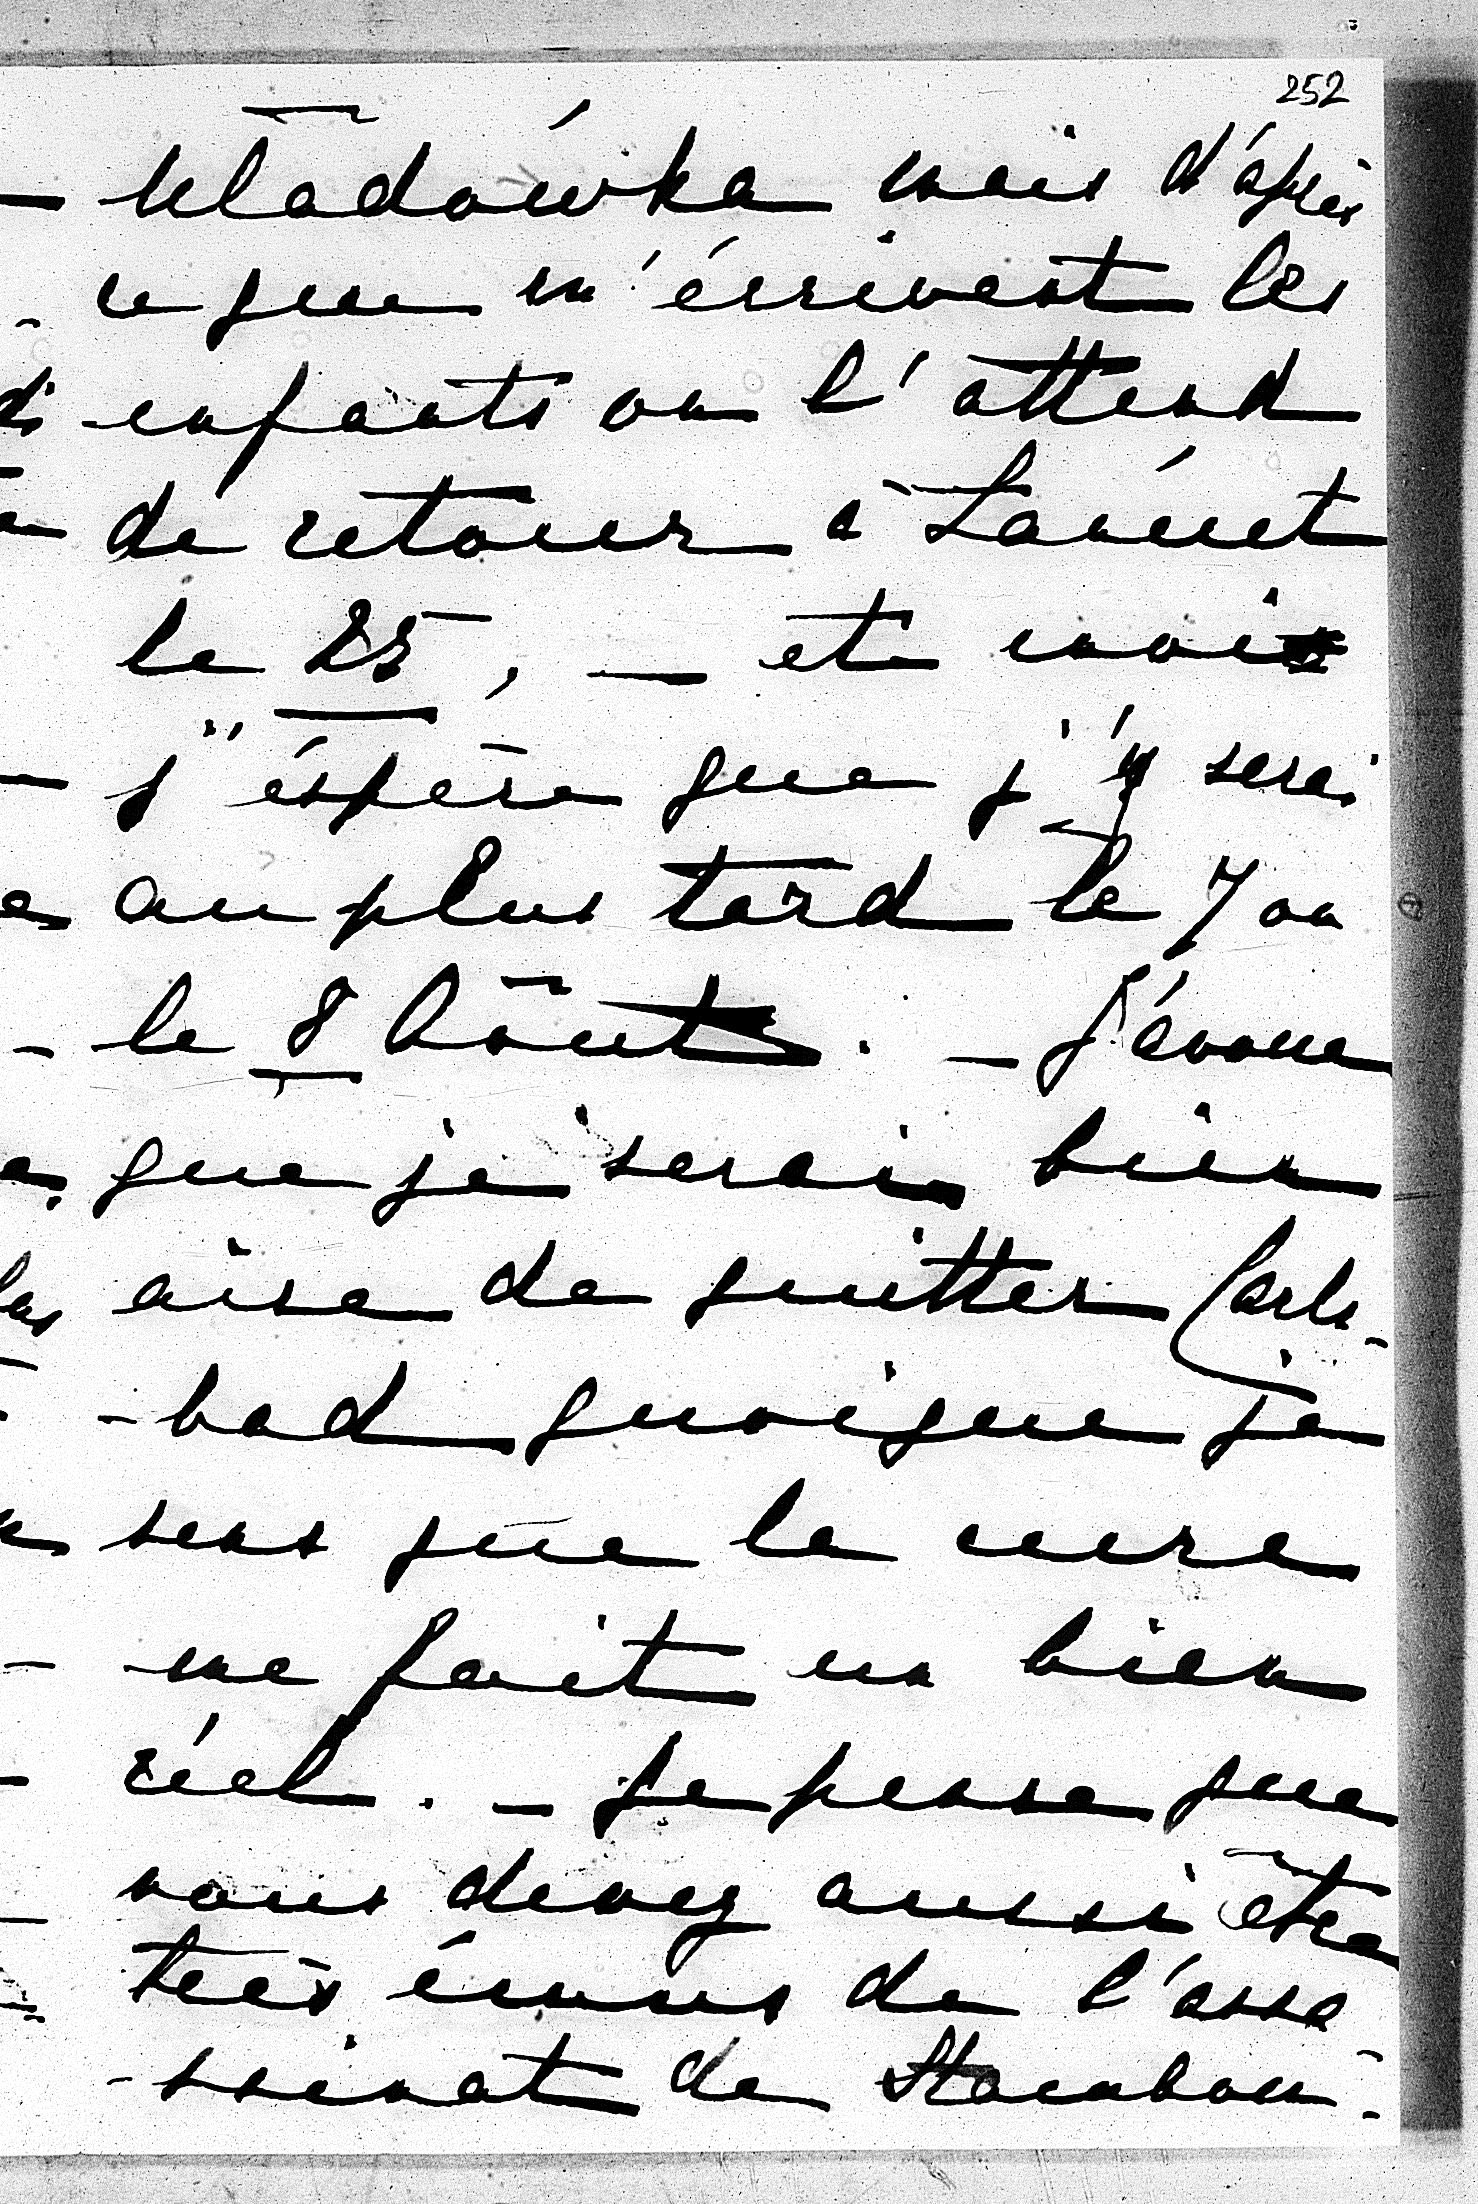 252
Uładówka mais d'après
ce que m'écrivent les
enfants on l'attend
de retour à Łańcut
le 25, — et moi
j'éspère que j'y serai
au plus tard le 7 ou
le 8 Août. — J'avoue
que je serai bien
aise de quitter Carls-
-bad quoique je
sens que la cure
me fait un bien
réel. — Je pense que
vous devez aussi être
très émus de l'assa
-ssinat de Stambou-